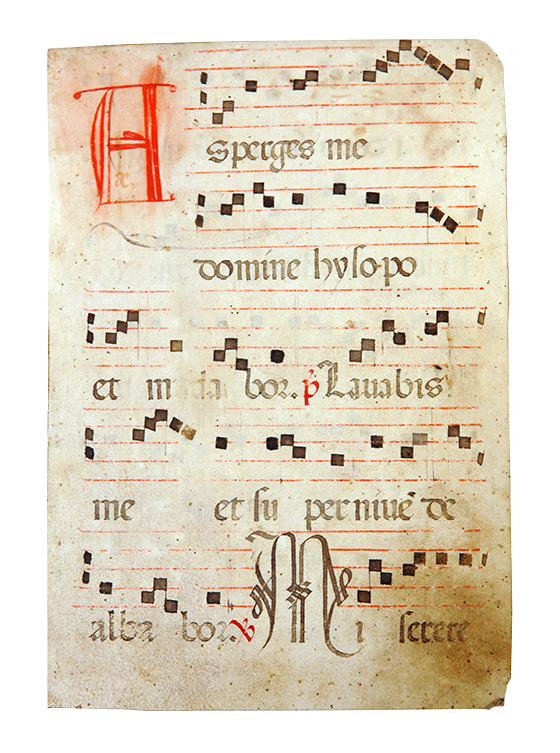 Asperges me
domine hyssopo
et munda bor. p̃ Lavabis
me et su per nivẽ de
alba bor. ℣ Mi serere